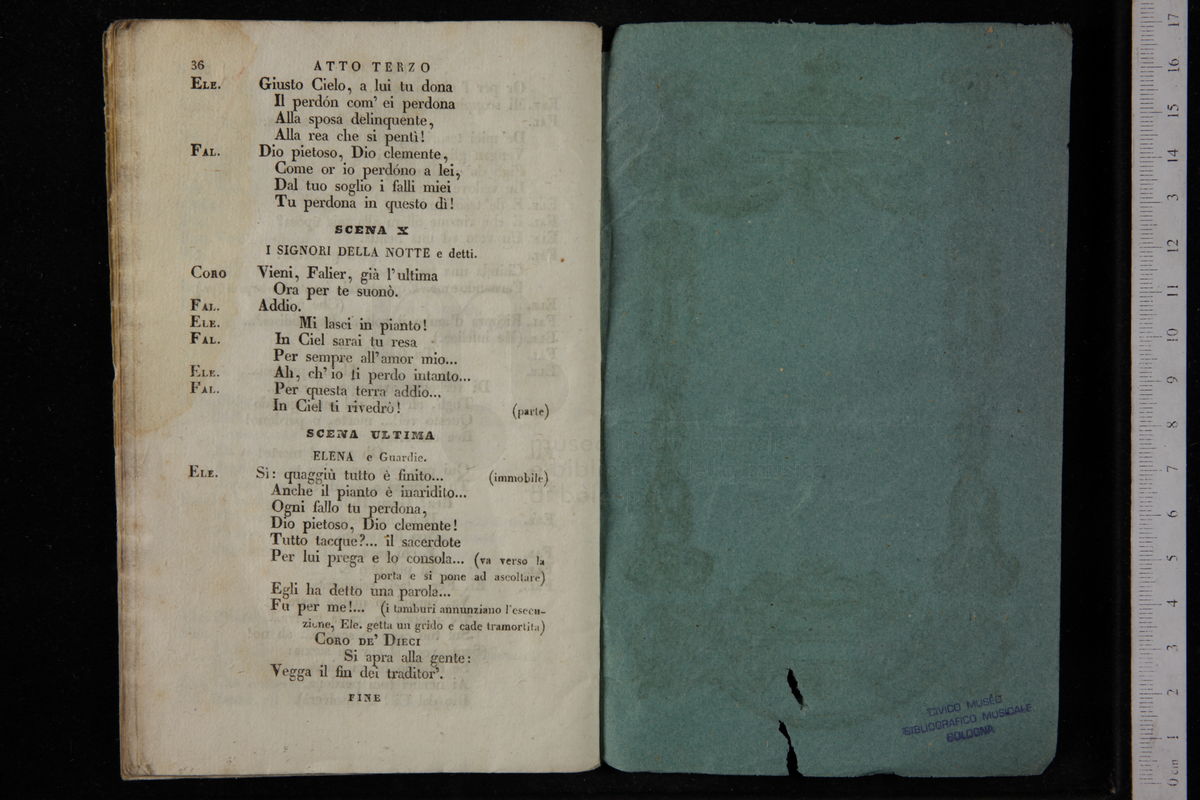 36 ATTO TERZO
ELE. Giusto Cielo, a lui tu dona
Il perdón com' ei perdona
Alla sposa delinquente,
Alla rea che si pentì!
FAL. Dio pietoso, Dio clemente,
Come or io perdóno a lei,
Dal tuo soglio i falli miei
Tu perdona in questo dì!
SCENA X
I SIGNORI DELLA NOTTE e detti.
CORO Vieni, Falier, già l'ultima
Ora per te suonò.
FAL. Addio.
ELE. Mi lasci in pianto!
FAL. In Ciel sarai tu resa
Per sempre all'amor mio...
ELE. Ah, ch' io ti perdo intanto...
FAL. Per questa terra addio...
In Ciel ti rivedrò! (parte)
SCENA ULTIMA
ELENA e Guardie.
ELE. Sì: quaggiù tutto è finito... (immobile)
Anche il pianto è inaridito...
Ogni fallo tu perdona,
Dio pietoso, Dio clemente!
Tutto tacque?... il sacerdote
Per lui prega e lo consola... (va verso la
porta e si pone ad ascoltare)
Egli ha detto una parola...
Fu per me!... (i tamburi annunziano l'esecu-
zione, Ele. getta un grido e cade tramortita)
CORO DE' DIECI
Si apra alla gente:
Vegga il fin dei traditor'.
FINE
CIVICO MUSEO
BIBLIOGRAFICO MUSICALE
BOLOGNA
0 cm 1 2 3 4 5 6 7 8 9 10 11 12 3 14 15 16 17